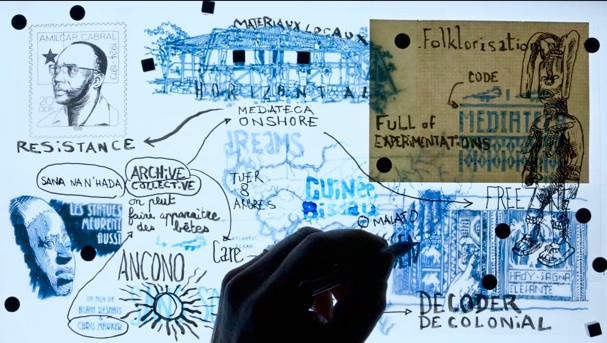 AMILCAR CABRAL
1924-1973
RESISTANCE
MATERIAUX LOCAUX
HORIZONTAL
MEDIATECA
ONSHORE
Folklorisation
CODE
MEDIATECA
FULL of
EXPERIMENTATIONS
SANA NA N'HADA
ARCHIVE
COLLECTIVE
on peut
faire apparaître
des bêtes
DREAMS
TUER
8
ARBRES
GUINÉE
Bissau
FREE
MALAFO
LES STATUES
MEURENT
AUSSI
UN FILM DE
ALAIN RESNAIS
& CHRIS MARKER
ANCONO
Care
DECODER
DECOLONIAL